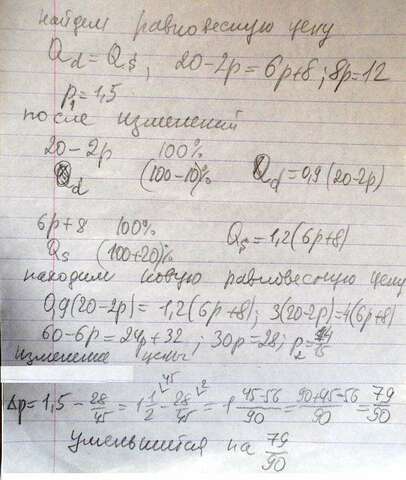 найдем равновесную цену
Qd = Qs, 20-2p = 6p+8; 8p=12
p₁=1,5
после изменений
20-2p 100%
Qd (100-10)% Qd=0,9(20-2p)
6p+8 100% Qs=1,2(6p+8)
Qs (100+20)%
находим новую равновесную цену
0,9(20-2p)= 1,2(6p+8); 3(20-2p)=4(6p+8)
60-6p=24p+32; 30p=28; p₂=
изменение цены
Δp= 1,5 - 28/45 = 1 1/2 - 28/45 = 1 45-56/90 = 90+45-56/90 = 79/90
уменьшится на 79/90